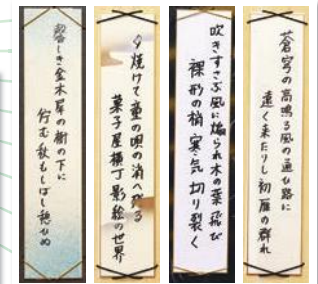 蒼穹の高鳴る風の通ひ路に
遠く来たりし初雁の群れ
吹きすさぶ風に煽られ木の葉飛び
裸形の梢寒気切り裂く
夕焼けて童の唄の消へ残る
菓子屋横丁影絵の世界
しき金木犀の樹の下に
佇む秋もしばし憩ひぬ